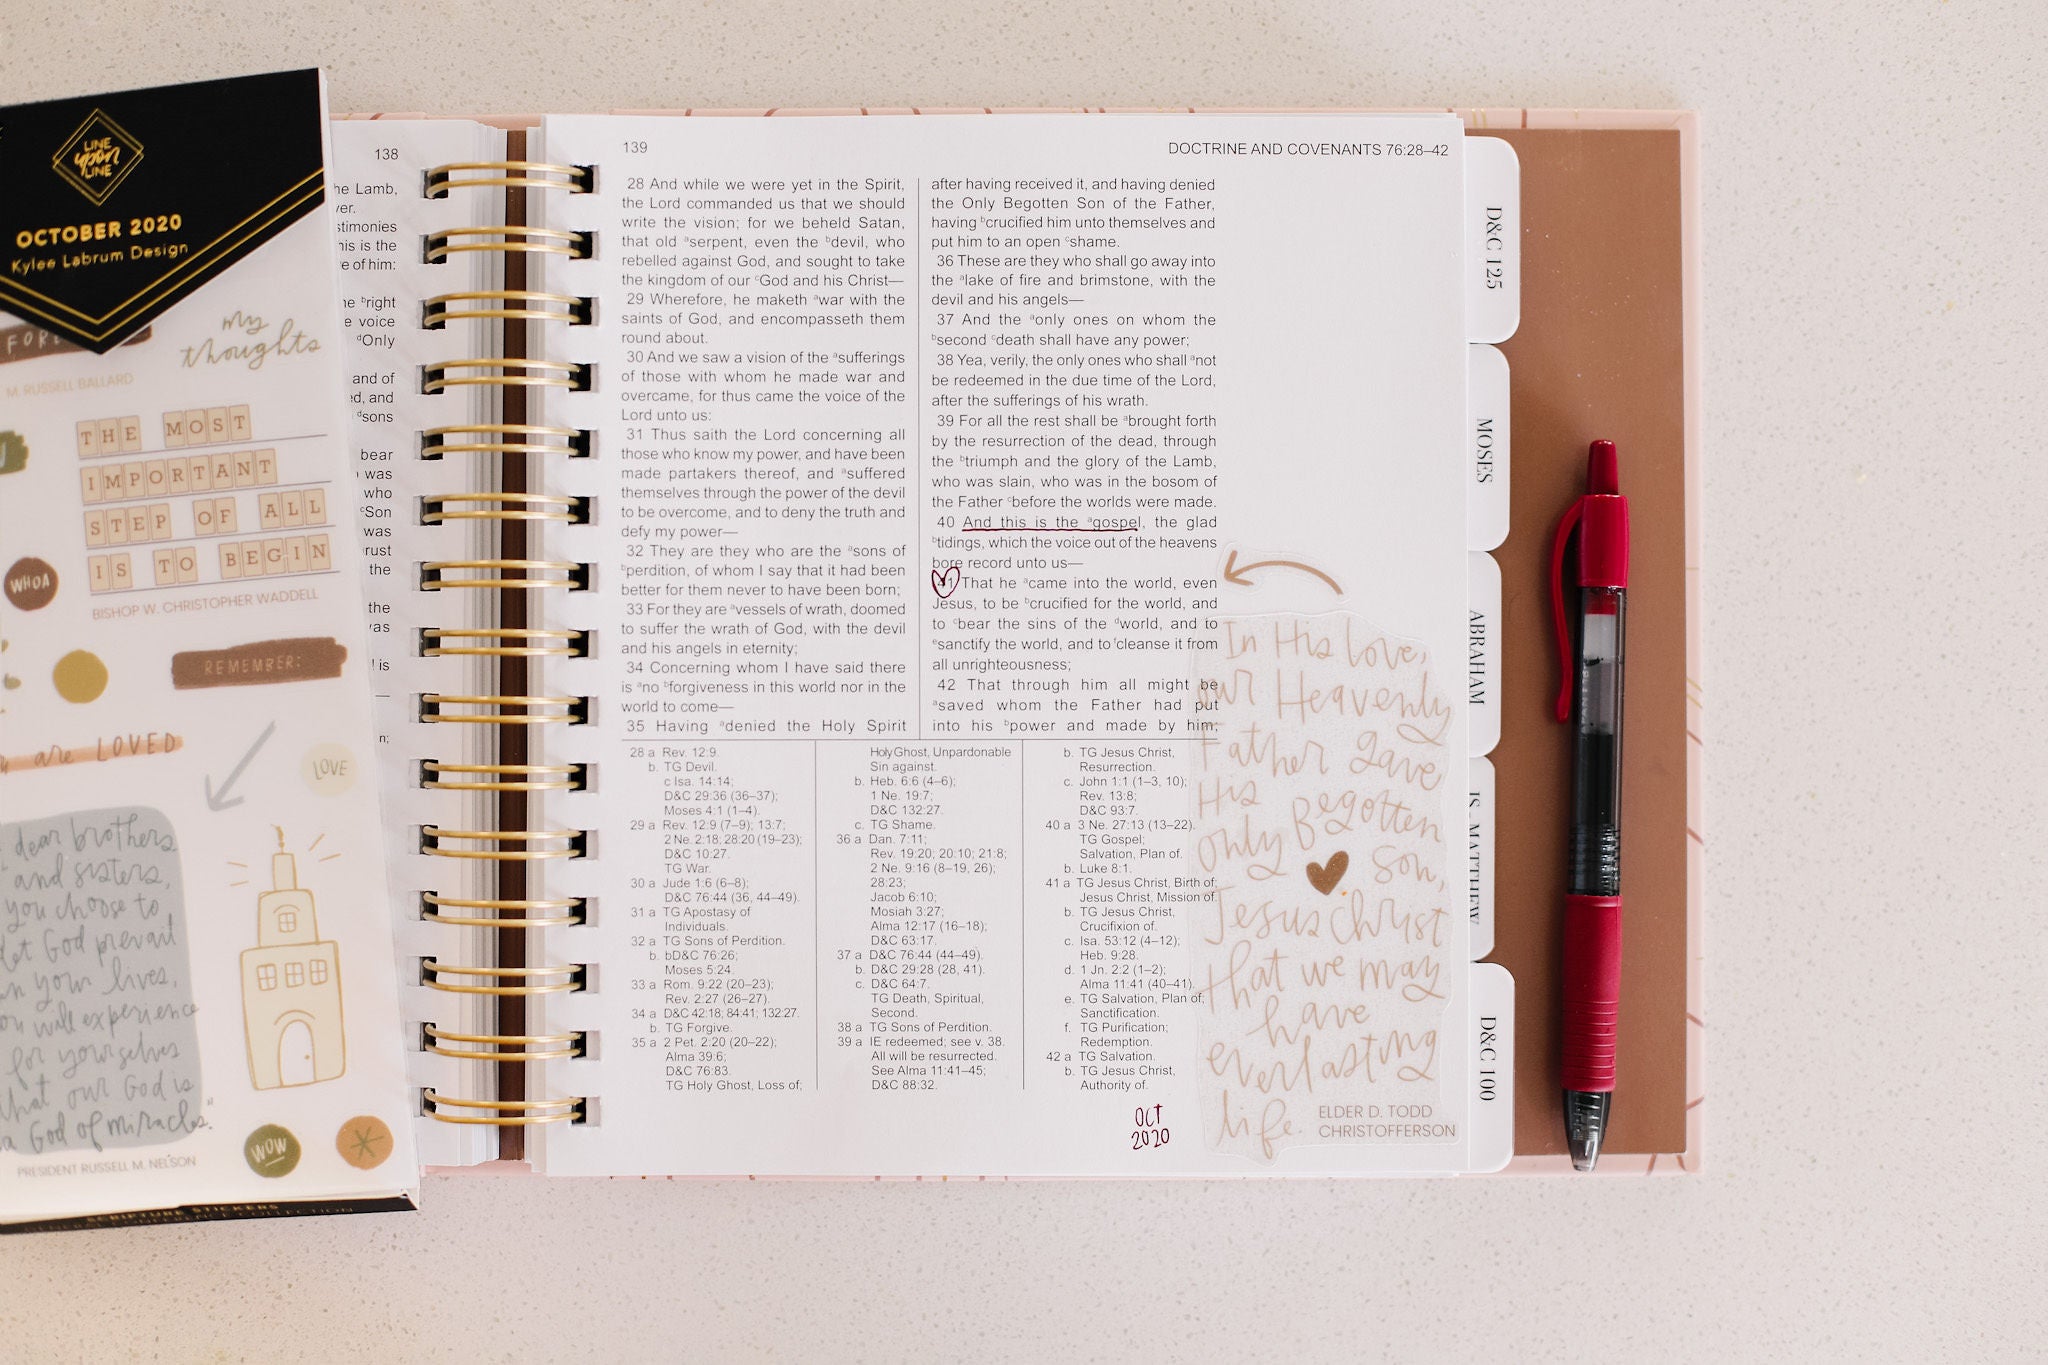 LINE
upon
LINE
OCTOBER 2020
Kylee Labrum Design
my
thoughts
M. RUSSELL BALLARD
THE MOST
IMPORTANT
STEP OF ALL
IS TO BEGIN
BISHOP W. CHRISTOPHER WADDELL
WHOA
REMEMBER:
are LOVED
LOVE
dear brothers
and sisters,
you choose to
let God prevail
in your lives,
you will experience
for yourselves
that our God is
a God of miracles."
PRESIDENT RUSSELL M. NELSON
WOW
SCRIPTURE STICKERS
GENERAL CONFERENCE COLLECTION
138
he Lamb,
ver.
stimonies
his is the
e of him:
he ᵇright
e voice
ᵈOnly
and of
ed, and
ᵈsons
bear
was
who
ᶜSon
was
rust
the
the
was
is
n;
139
DOCTRINE AND COVENANTS 76:28–42
28 And while we were yet in the Spirit,
the Lord commanded us that we should
write the vision; for we beheld Satan,
that old ᵃserpent, even the ᵇdevil, who
rebelled against God, and sought to take
the kingdom of our ᶜGod and his Christ—
29 Wherefore, he maketh ᵃwar with the
saints of God, and encompasseth them
round about.
30 And we saw a vision of the ᵃsufferings
of those with whom he made war and
overcame, for thus came the voice of the
Lord unto us:
31 Thus saith the Lord concerning all
those who know my power, and have been
made partakers thereof, and ᵃsuffered
themselves through the power of the devil
to be overcome, and to deny the truth and
defy my power—
32 They are they who are the ᵃsons of
ᵇperdition, of whom I say that it had been
better for them never to have been born;
33 For they are ᵃvessels of wrath, doomed
to suffer the wrath of God, with the devil
and his angels in eternity;
34 Concerning whom I have said there
is ᵃno ᵇforgiveness in this world nor in the
world to come—
35 Having ᵃdenied the Holy Spirit
after having received it, and having denied
the Only Begotten Son of the Father,
having ᵇcrucified him unto themselves and
put him to an open ᶜshame.
36 These are they who shall go away into
the ᵃlake of fire and brimstone, with the
devil and his angels—
37 And the ᵃonly ones on whom the
ᵇsecond ᶜdeath shall have any power;
38 Yea, verily, the only ones who shall ᵃnot
be redeemed in the due time of the Lord,
after the sufferings of his wrath.
39 For all the rest shall be ᵃbrought forth
by the resurrection of the dead, through
the ᵇtriumph and the glory of the Lamb,
who was slain, who was in the bosom of
the Father ᶜbefore the worlds were made.
40 And this is the ᵃgospel, the glad
ᵇtidings, which the voice out of the heavens
bore record unto us—
41 That he ᵃcame into the world, even
Jesus, to be ᵇcrucified for the world, and
to ᶜbear the sins of the ᵈworld, and to
ᵉsanctify the world, and to ᶠcleanse it from
all unrighteousness;
42 That through him all might be
ᵃsaved whom the Father had put
into his ᵇpower and made by him;
28 a Rev. 12:9.
b. TG Devil.
c Isa. 14:14;
D&C 29:36 (36–37);
Moses 4:1 (1–4).
29 a Rev. 12:9 (7–9); 13:7;
2 Ne. 2:18; 28:20 (19–23);
D&C 10:27.
TG War.
30 a Jude 1:6 (6–8);
D&C 76:44 (36, 44–49).
31 a TG Apostasy of
Individuals.
32 a TG Sons of Perdition.
b. bD&C 76:26;
Moses 5:24.
33 a Rom. 9:22 (20–23);
Rev. 2:27 (26–27).
34 a D&C 42:18; 84:41; 132:27.
b. TG Forgive.
35 a 2 Pet. 2:20 (20–22);
Alma 39:6;
D&C 76:83.
TG Holy Ghost, Loss of;
Holy Ghost, Unpardonable
Sin against.
b. Heb. 6:6 (4–6);
1 Ne. 19:7;
D&C 132:27.
c. TG Shame.
36 a Dan. 7:11;
Rev. 19:20; 20:10; 21:8;
2 Ne. 9:16 (8–19, 26);
28:23;
Jacob 6:10;
Mosiah 3:27;
Alma 12:17 (16–18);
D&C 63:17.
37 a D&C 76:44 (44–49).
b. D&C 29:28 (28, 41).
c. D&C 64:7.
TG Death, Spiritual,
Second.
38 a TG Sons of Perdition.
39 a IE redeemed; see v. 38.
All will be resurrected.
See Alma 11:41–45;
D&C 88:32.
b. TG Jesus Christ,
Resurrection.
c. John 1:1 (1–3, 10);
Rev. 13:8;
D&C 93:7.
40 a 3 Ne. 27:13 (13–22).
TG Gospel;
Salvation, Plan of.
b. Luke 8:1.
41 a TG Jesus Christ, Birth of;
Jesus Christ, Mission of.
b. TG Jesus Christ,
Crucifixion of.
c. Isa. 53:12 (4–12);
Heb. 9:28.
d. 1 Jn. 2:2 (1–2);
Alma 11:41 (40–41).
e. TG Salvation, Plan of;
Sanctification.
f. TG Purification;
Redemption.
42 a TG Salvation.
b. TG Jesus Christ,
Authority of.
OCT
2020
In His love,
our Heavenly
Father gave
His
only Begotten
Son,
Jesus Christ
that we may
have
everlasting
life.
ELDER D. TODD
CHRISTOFFERSON
D&C 125
MOSES
ABRAHAM
JS MATTHEW
D&C 100